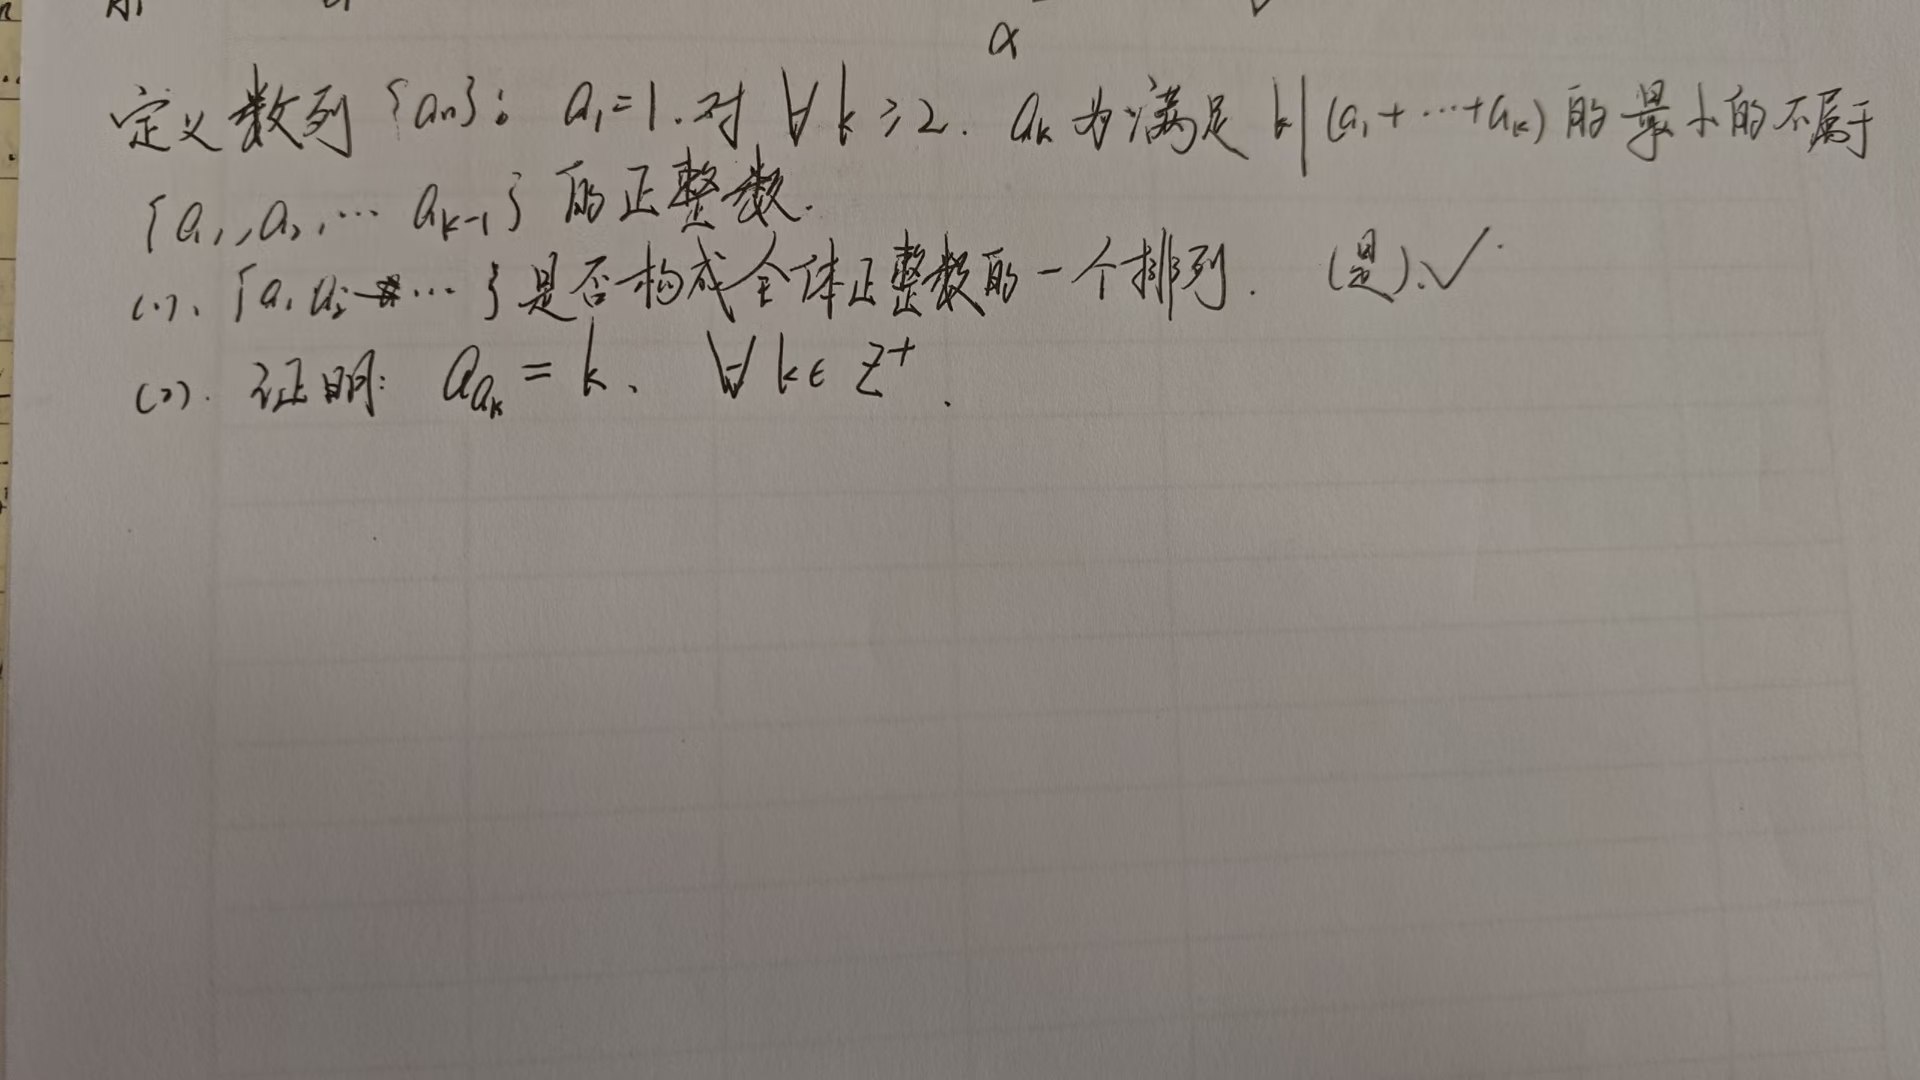 α
定义数列 {aₙ}: a₁=1. 对 ∀ k ≥2. aₖ 为满足 k|(a₁+…+aₖ) 的最小的不属于
{a₁, a₂, … aₖ₋₁} 的正整数.
(1). {a₁ a₂ … } 是否构成全体正整数的一个排列. (是).√
(2). 证明: a_{aₖ} = k. ∀ k∈ Z⁺.